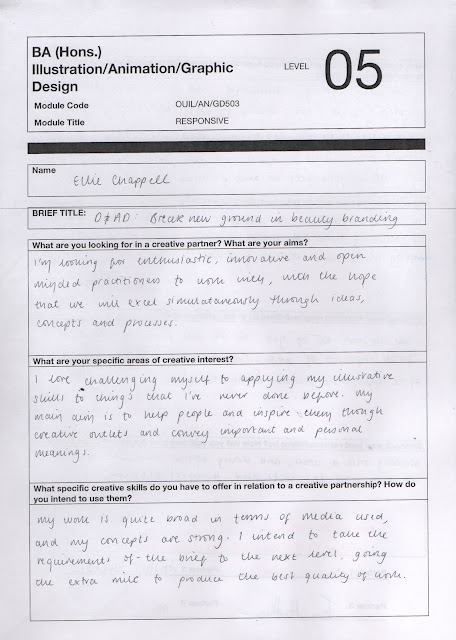 BA (Hons.)
Illustration/Animation/Graphic
Design
LEVEL 05
Module Code OUIL/AN/GD503
Module Title RESPONSIVE
Name
Ellie Chappell
BRIEF TITLE: D&AD: Break new ground in beauty branding
What are you looking for in a creative partner? What are your aims?
I'm looking for enthusiastic, innovative and open
minded practitioners to work with, with the hope
that we will excel simultaneously through ideas,
concepts and processes.
What are your specific areas of creative interest?
I love challenging myself to applying my illustrative
skills to things that I've never done before. My
main aim is to help people and inspire them through
creative outlets and convey important and personal
meanings.
What specific creative skills do you have to offer in relation to a creative partnership? How do
you intend to use them?
My work is quite broad in terms of media used,
and my concepts are strong. I intend to take the
requirements of the brief to the next level, going
the extra mile to produce the best quality of work.